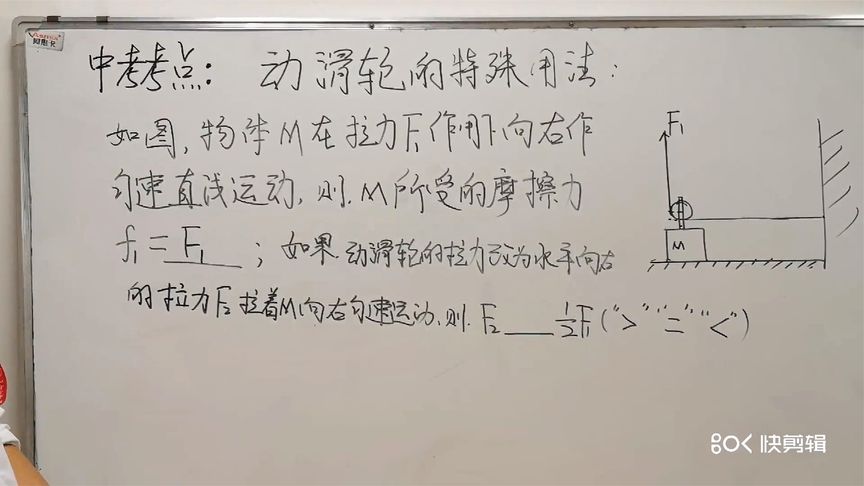 中考考点：动滑轮的特殊用法：
如图，物体M在拉力F₁作用下向右作
匀速直线运动，则M所受的摩擦力
f₁=F₁；如果动滑轮的拉力改为水平向右
的拉力F₂拉着M向右匀速运动，则F₂____½F₁(">""=""<")
F₁
M
快剪辑